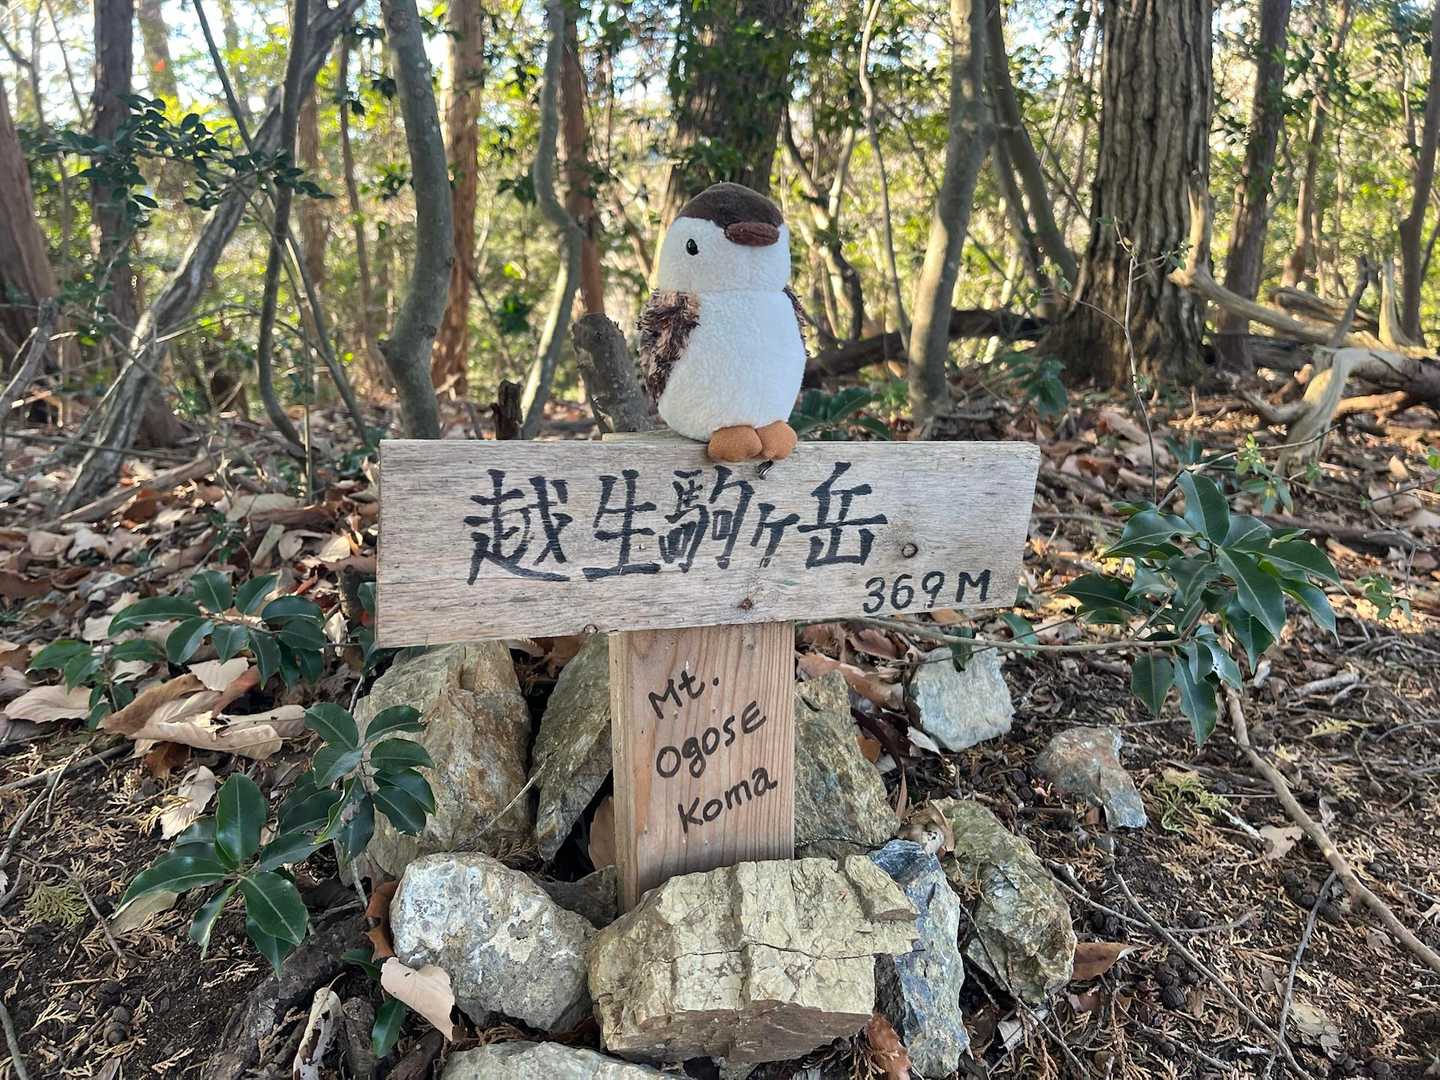 越生駒ヶ岳
369M
Mt.
Ogose
Koma